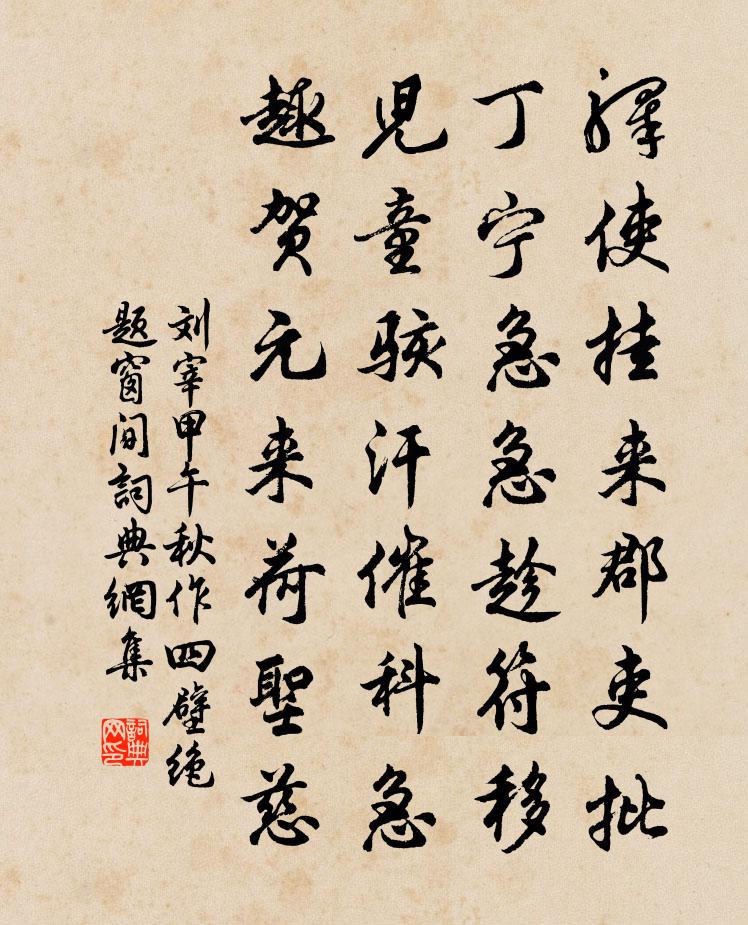 驛使挂来郡吏批
丁宁急急趁符移
児童骇汗催科急
趣贺元来荷聖慈
刘宰甲午秋作四壁绝
题窗间詞典網集
詞典网印